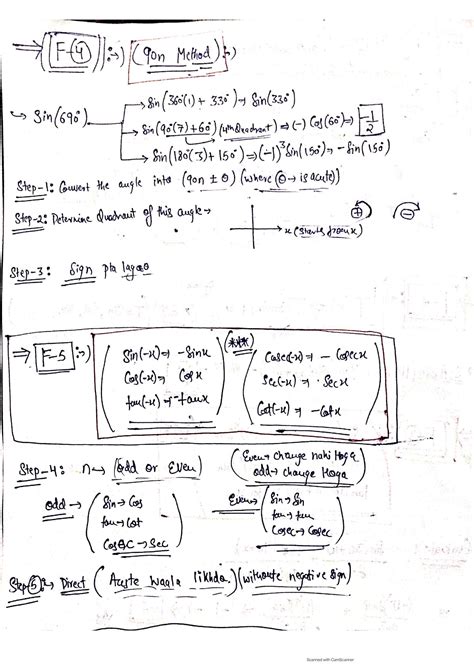 ⇒ [F-4] :→) (90n Method) :→)
↳ Sin(690°) → Sin(360(1) + 330°) → Sin(330°)
→ Sin(90°(7) + 60°) (4th Quadrant) ⇒ (-) Cos(60°) ⇒ -1/2
→ Sin(180°(3) + 150°) ⇒ (-1)^3 Sin(150°) → -Sin(150)
Step-1: Convert the angle into (90n ± θ) (where θ → is acute)
Step-2: Determine Quadrant of this angle →
x (starts from x)
⊕ ⊖
Step-3: Sign pta lagao
⇒ [F-5] :→)
Sin(-x) → -Sinx (***) Cosec(-x) → -Cosecx
Cos(-x) → Cosx Sec(-x) → Secx
tan(-x) → -tanx Cot(-x) → -Cotx
Step-4: n → (Odd or Even) (Even → Change nahi Hoga
odd → Change Hoga)
Odd → (Sin → Cos Even → (Sin → Sin
tan → Cot tan → tan
CosEC → Sec) Cosec → Cosec)
Step(5): → Direct (Acute waala likhdo.) (without negative sign)
Scanned with CamScanner